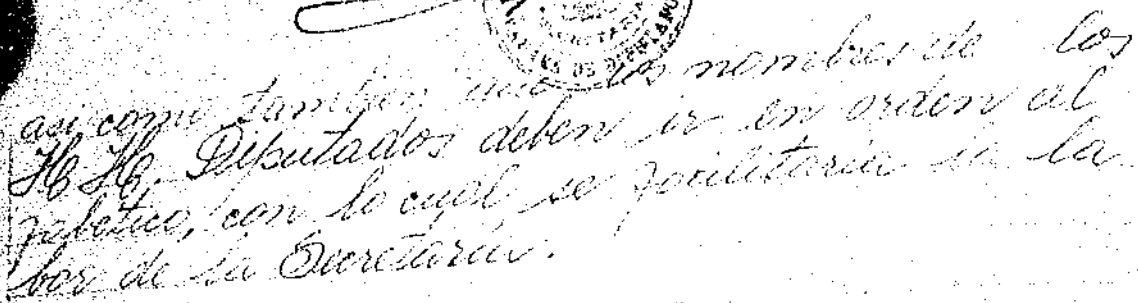 asi como tambien que los nombres de los
HH. Diputados deben ir en orden al
fabetico, con lo cual se facilitaria la la
bor de la Secretaria.